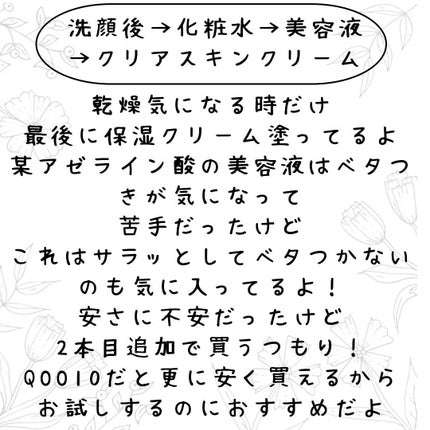 洗顔後→化粧水→美容液
→クリアスキンクリーム
乾燥気になる時だけ
最後に保湿クリーム塗ってるよ
某アゼライン酸の美容液はベタつ
きが気になって
苦手だったけど
これはサラッとしてベタつかない
のも気に入ってるよ！
安さに不安だったけど
2本目追加で買うつもり！
QOO10だと更に安く買えるから
お試しするのにおすすめだよ